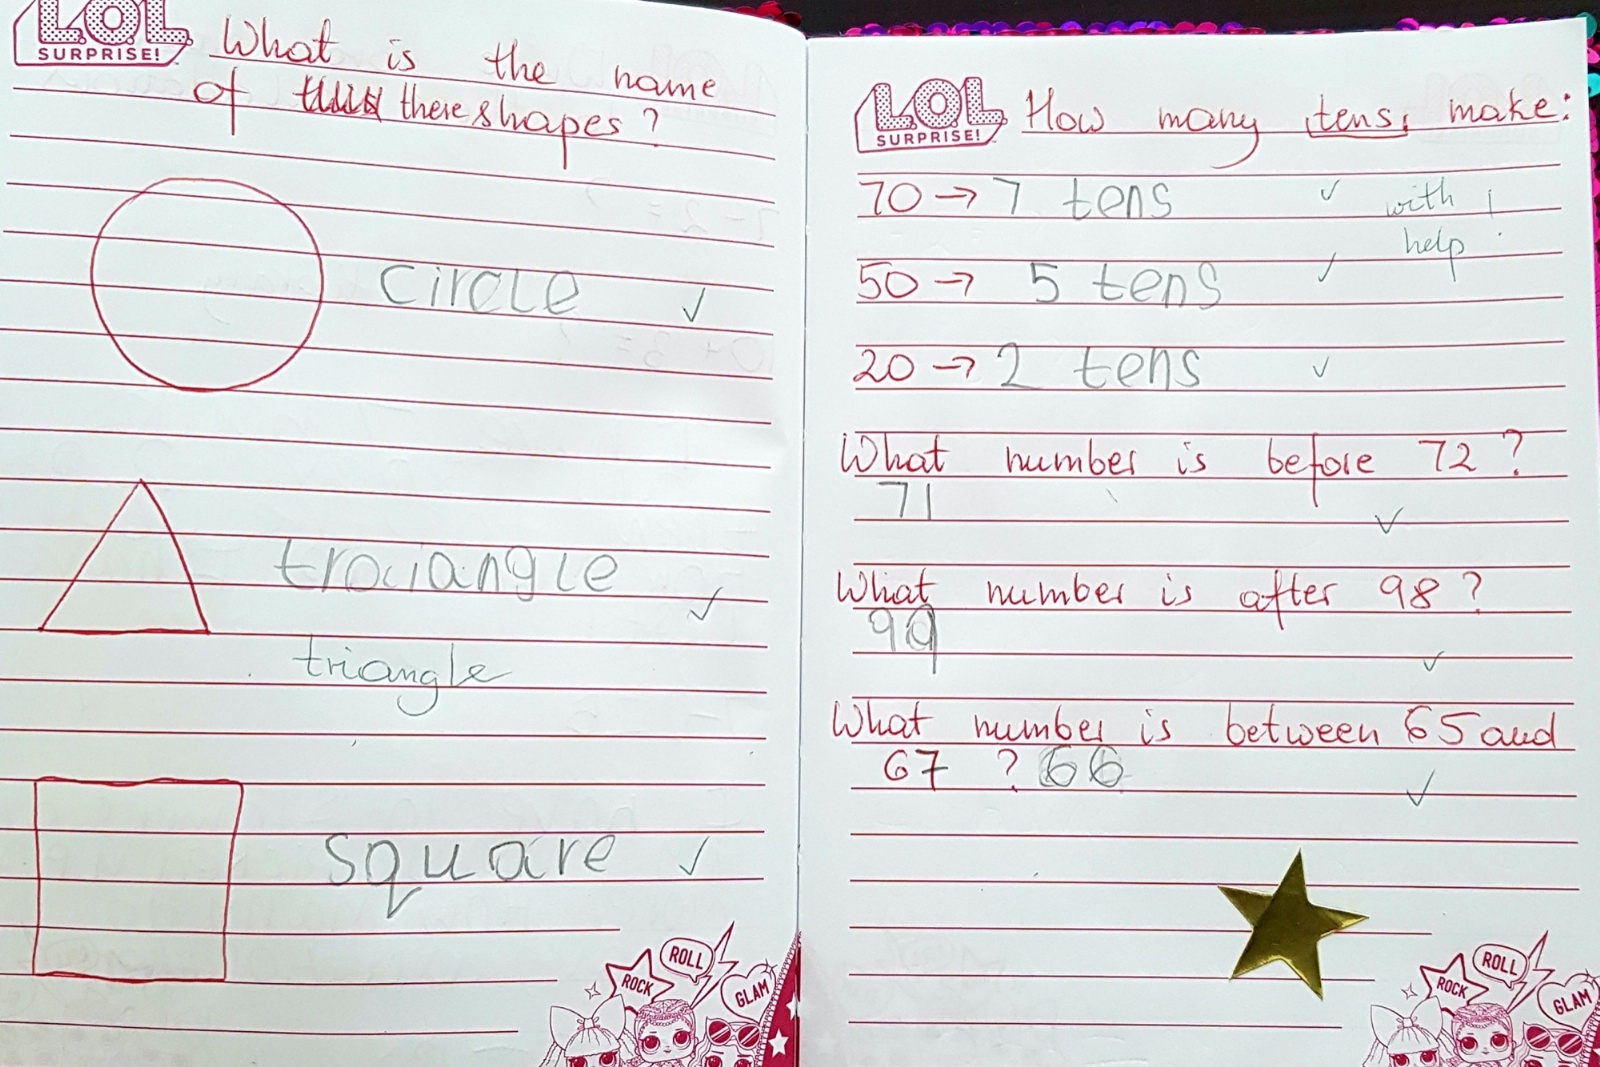 L.O.L.
SURPRISE!
What is the name
of there shapes?
circle ✓
traiangle ✓
triangle
square ✓
ROCK
ROLL
GLAM
L.O.L.
SURPRISE!
How many tens, make:
70 → 7 tens ✓ with !
help
50 → 5 tens ✓
20 → 2 tens ✓
What number is before 72?
71 ✓
What number is after 98?
99 ✓
What number is between 65 and
67 ? 66 ✓
ROCK
ROLL
GLAM